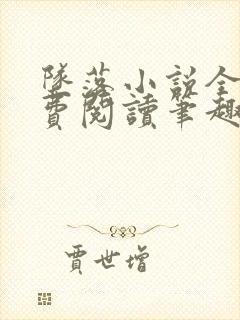 墜落小説全
費閱讀筆趣
賈世增